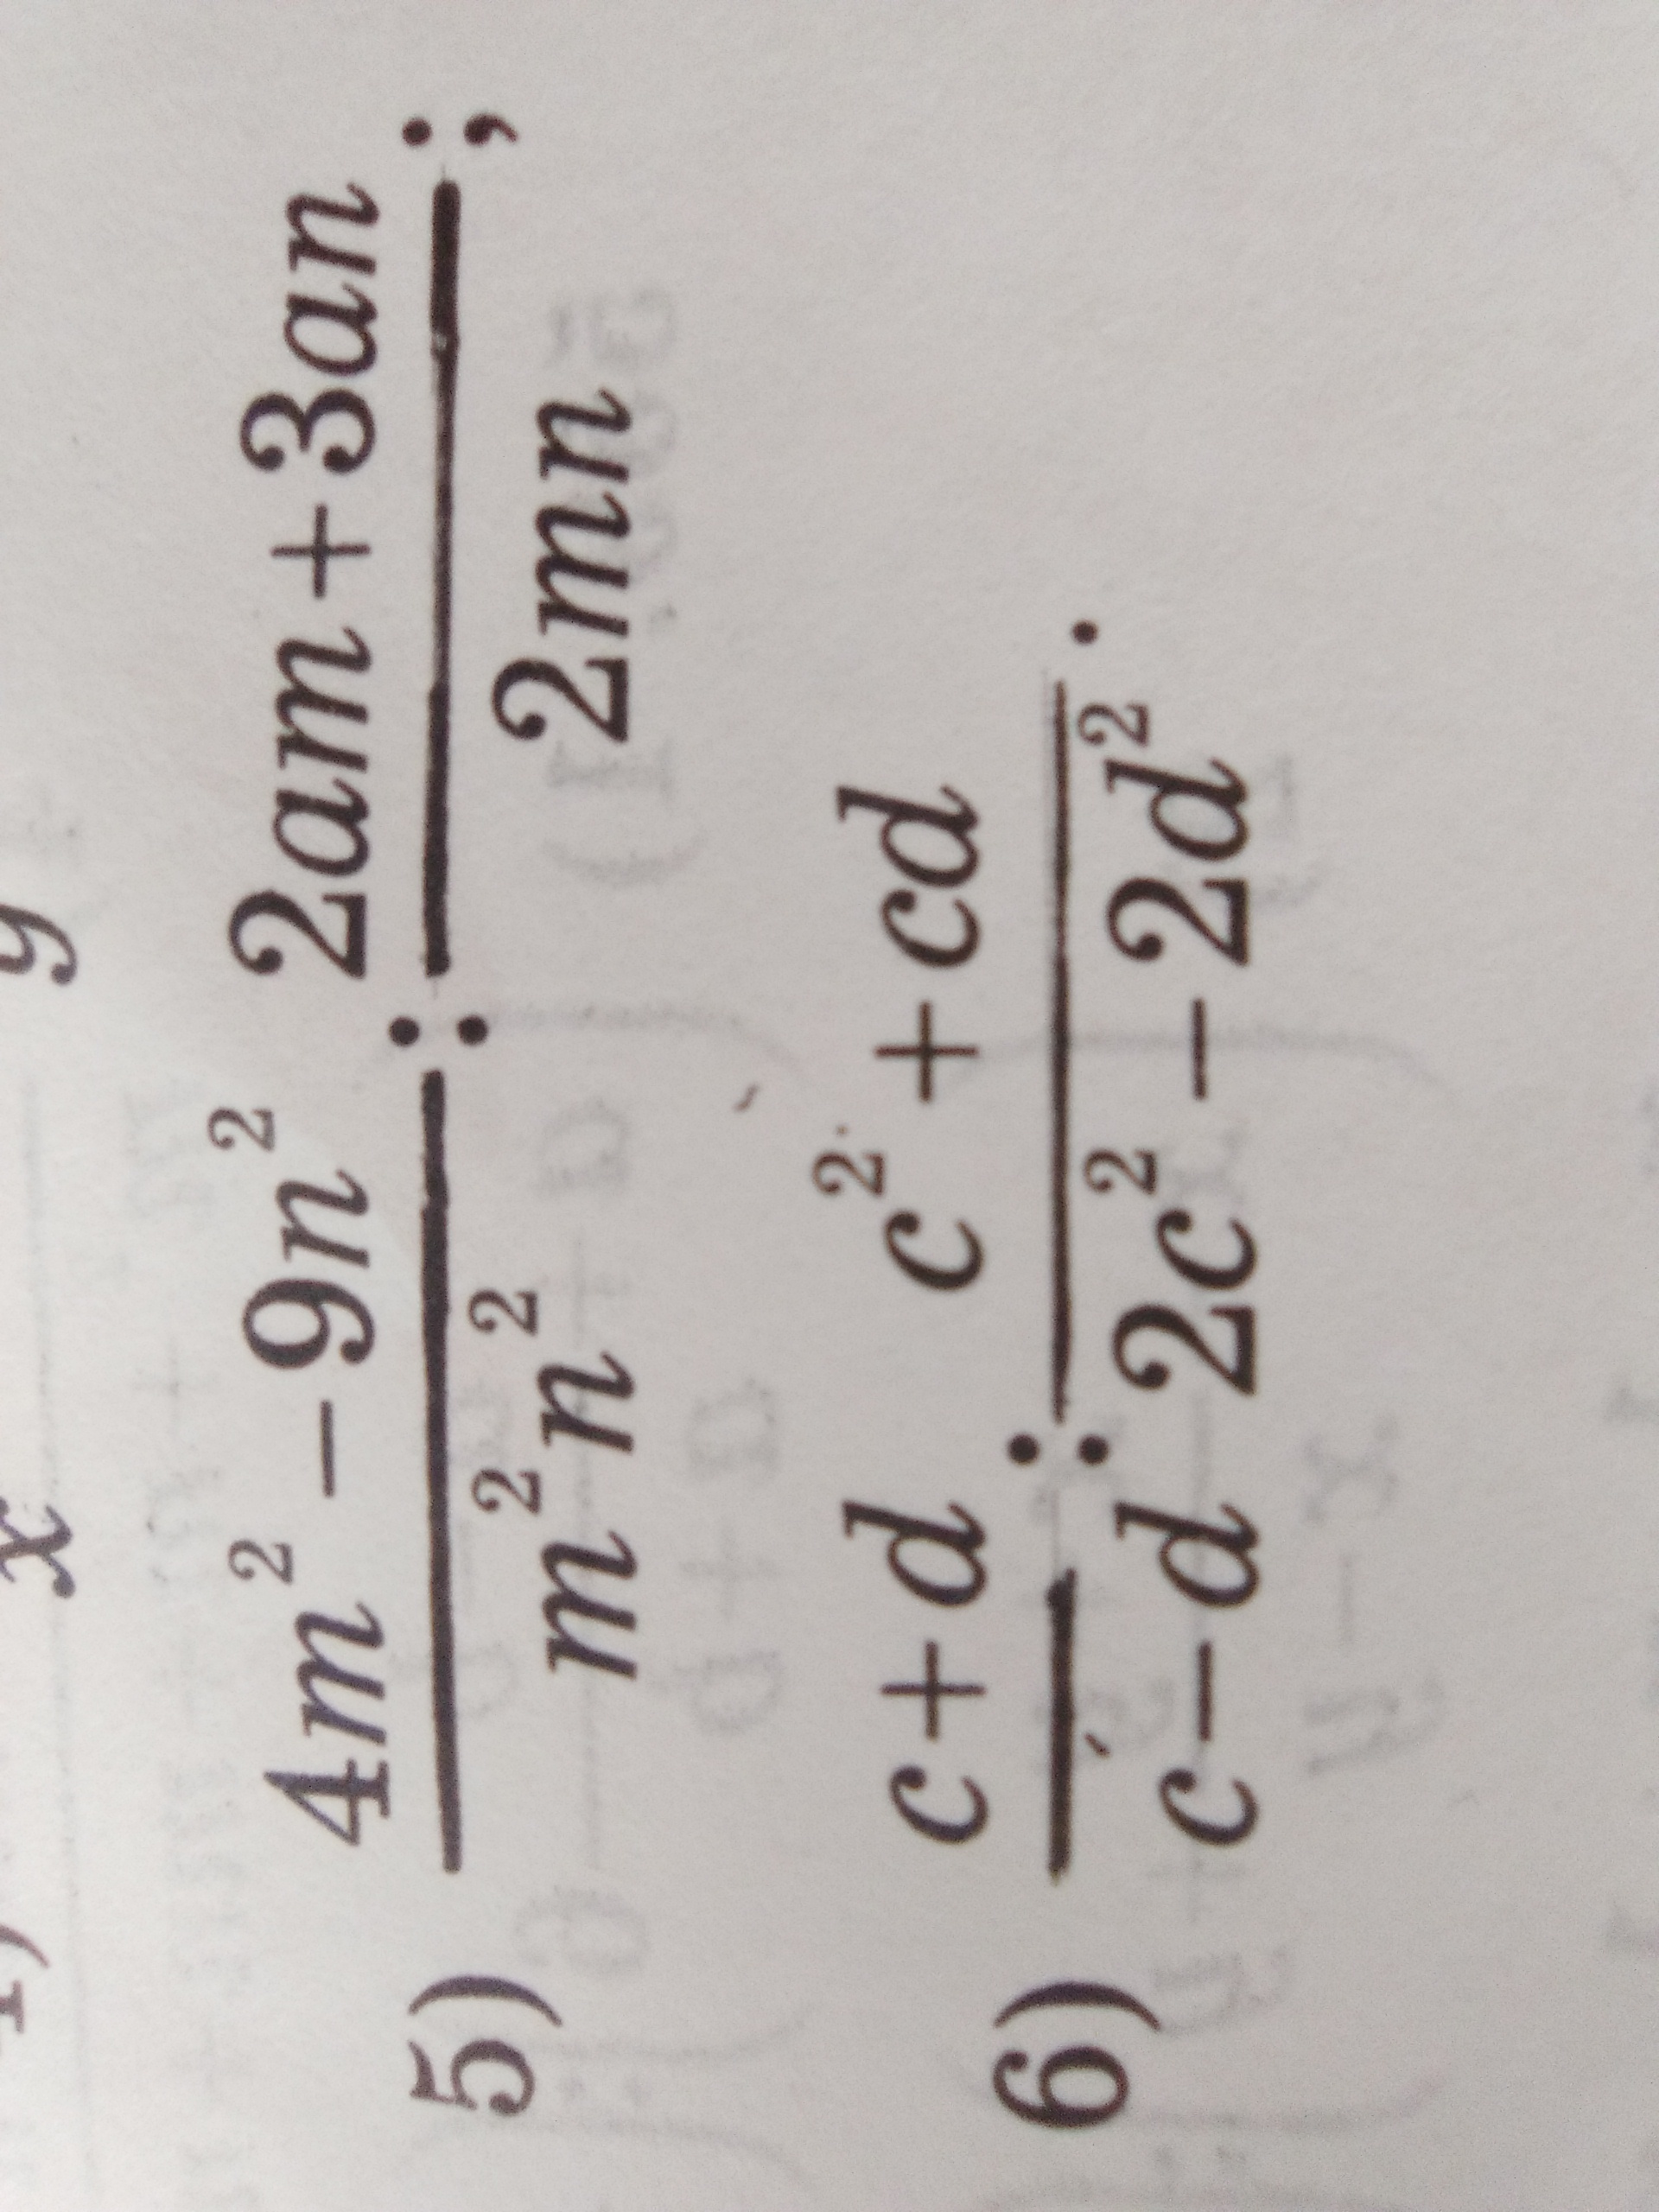 x y
5) (4m² − 9n²)/(m²n²) : (2am + 3an)/(2mn) ;
6) (c + d)/(c − d) : (c² + cd)/(2c² − 2d²) .